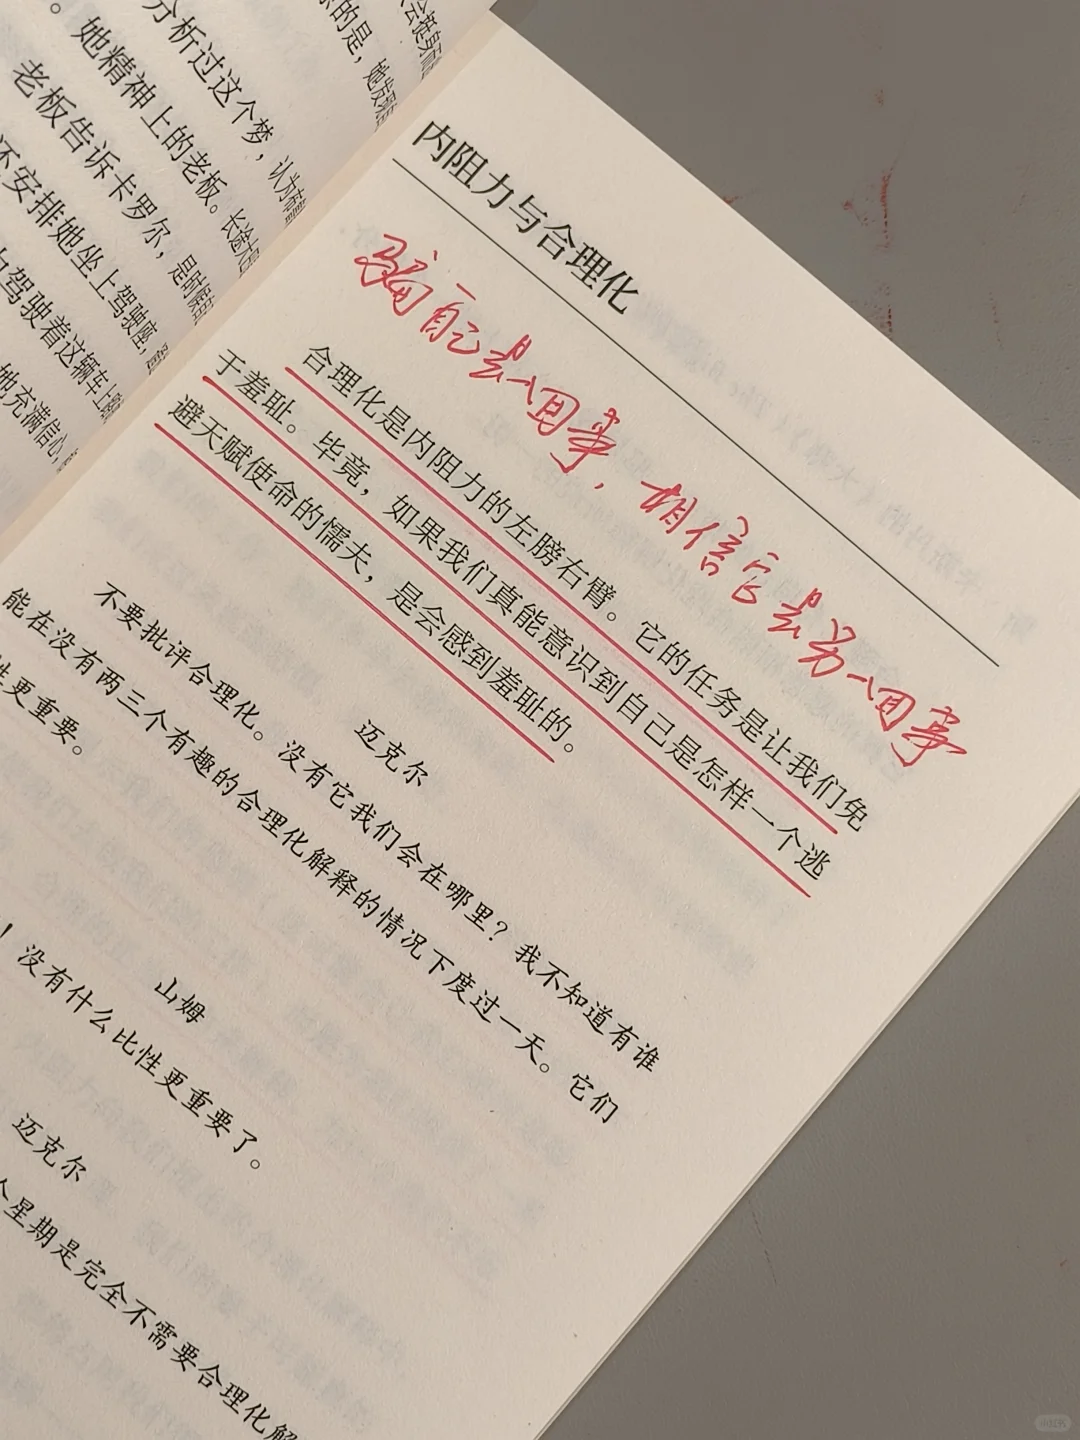 分析过这个梦，认为
。她精神上的老板。长途大巴
老板告诉卡罗尔，是时候
还安排她坐上驾驶座，
驾驶着这辆车上路
她充满信心，
内阻力与合理化
骗自己是一回事，相信它是另一回事
合理化是内阻力的左膀右臂。它的任务是让我们免
于羞耻。毕竟，如果我们真能意识到自己是怎样一个逃
避天赋使命的懦夫，是会感到羞耻的。
迈克尔
不要批评合理化。没有它我们会在哪里？我不知道有谁
能在没有两三个有趣的合理化解释的情况下度过一天。它们
性更重要。
山姆
！没有什么比性更重要了。
迈克尔
个星期是完全不需要合理化解
小红书